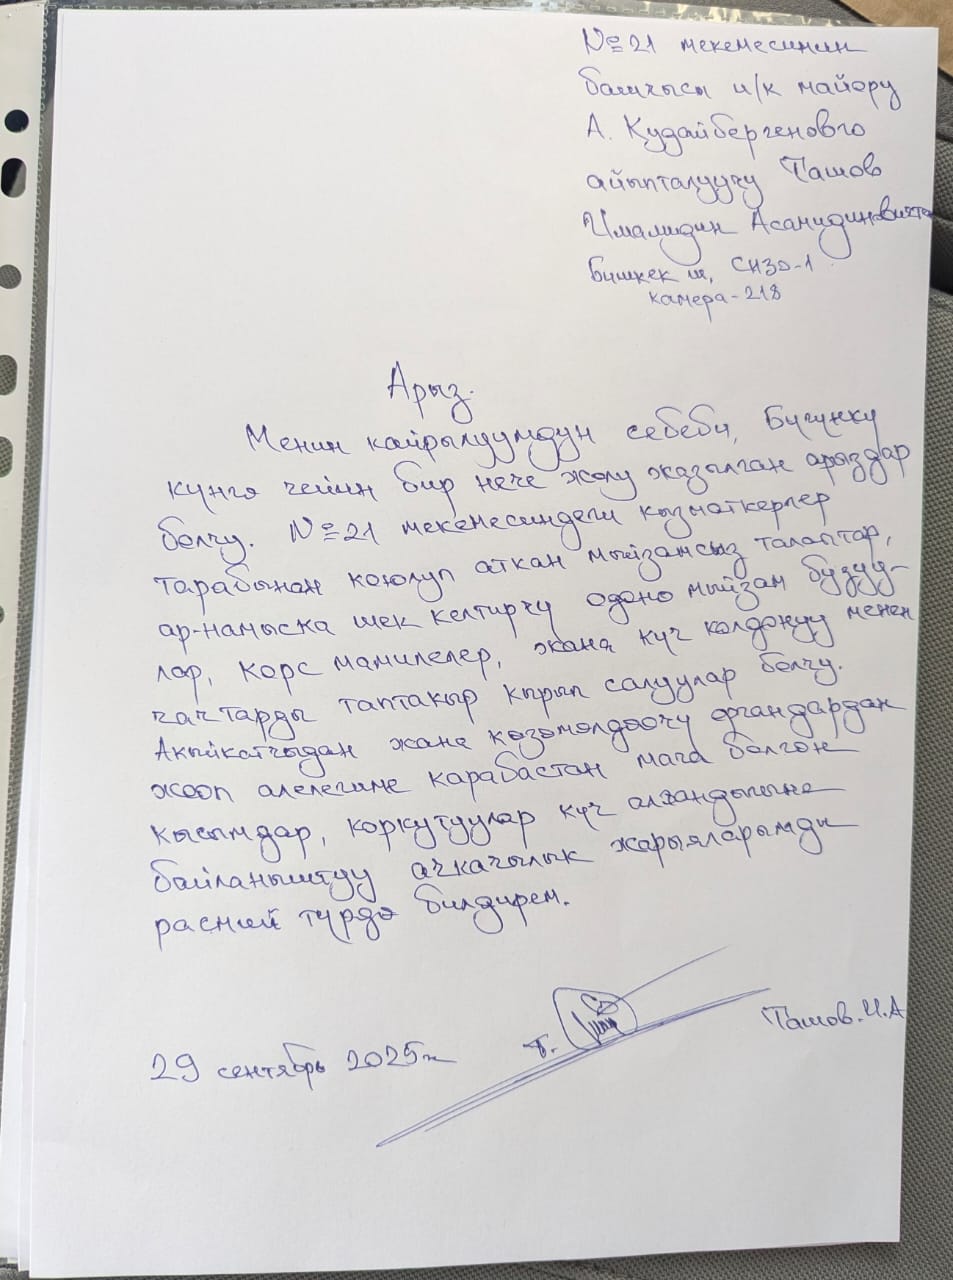 №21 мекемесинин
башчысы и/к майору
А. Кудайбергеновго
айыпталуучу Ташов
Имамидин Асамидиновичтен
Бишкек ш, СИЗО-1
камера-218
Арыз.
Менин кайрылуумдун себеби, Бүгүнкү
күнгө чейин бир нече жолу жазылган арыздар
болчу. №21 мекемесиндеги кызматкерлер
тарабынан коюлуп аткан мыйзамсыз талаптар,
ар-намыска шек келтирчү одоно мыйзам бузуу-
лар, корс мамилелер, жана күч колдонуу менен
чачтарды таптакыр кырып салуулар болчу.
Акыйкатчыдан жана көзөмөлдөөчү органдардан
жооп алелегиме карабастан мага болгон
кысымдар, коркутуулар күч алгандыгына
байланыштуу ачкачылык жарыяларымды
расмий түрдө билдирем.
29 сентябрь 2025ж
Т.
Ташов.И.А